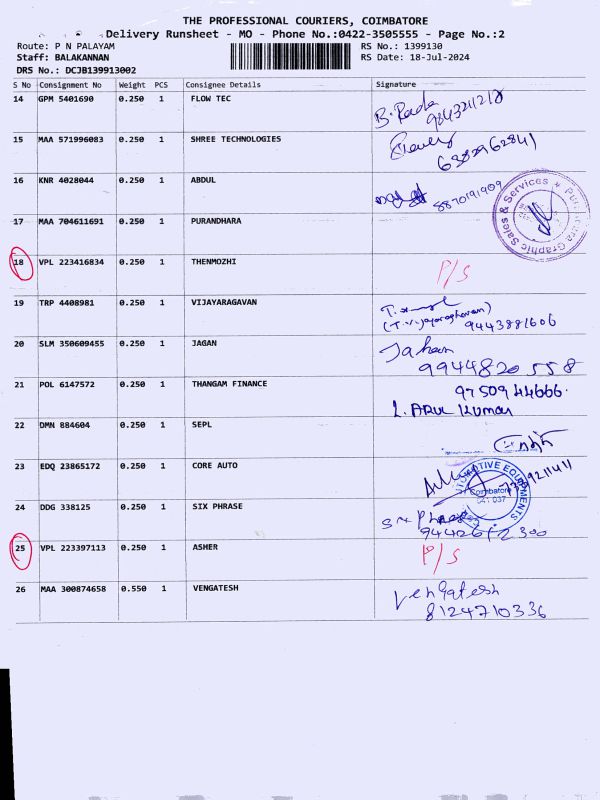 THE PROFESSIONAL COURIERS, COIMBATORE
Delivery Runsheet - MO - Phone No.:0422-3505555 - Page No.:2
Route: P N PALAYAM RS No.: 1399130
Staff: BALAKANNAN RS Date: 18-Jul-2024
DRS No.: DCJB139913002
S No Consignment No Weight PCS Consignee Details Signature
14 GPM 5401690 0.250 1 FLOW TEC 9843241218
15 MAA 571996083 0.250 1 SHREE TECHNOLOGIES 6382962841
16 KNR 4028044 0.250 1 ABDUL 8870191909
17 MAA 704611691 0.250 1 PURANDHARA Graphic Sales & Services
18 VPL 223416834 0.250 1 THENMOZHI P/S
19 TRP 4408981 0.250 1 VIJAYARAGAVAN
(T.Vijayaraghavan) 9443881606
20 SLM 350609455 0.250 1 JAGAN
9944820558
21 POL 6147572 0.250 1 THANGAM FINANCE 9750944666.
L. ARUL KUMAR
22 DMN 884604 0.250 1 SEPL
23 EDQ 23865172 0.250 1 CORE AUTO EQUIPMENTS Coimbatore
24 DDG 338125 0.250 1 SIX PHRASE
25 VPL 223397113 0.250 1 ASHER P/S
26 MAA 300874658 0.550 1 VENGATESH Vengatesh
8124710336